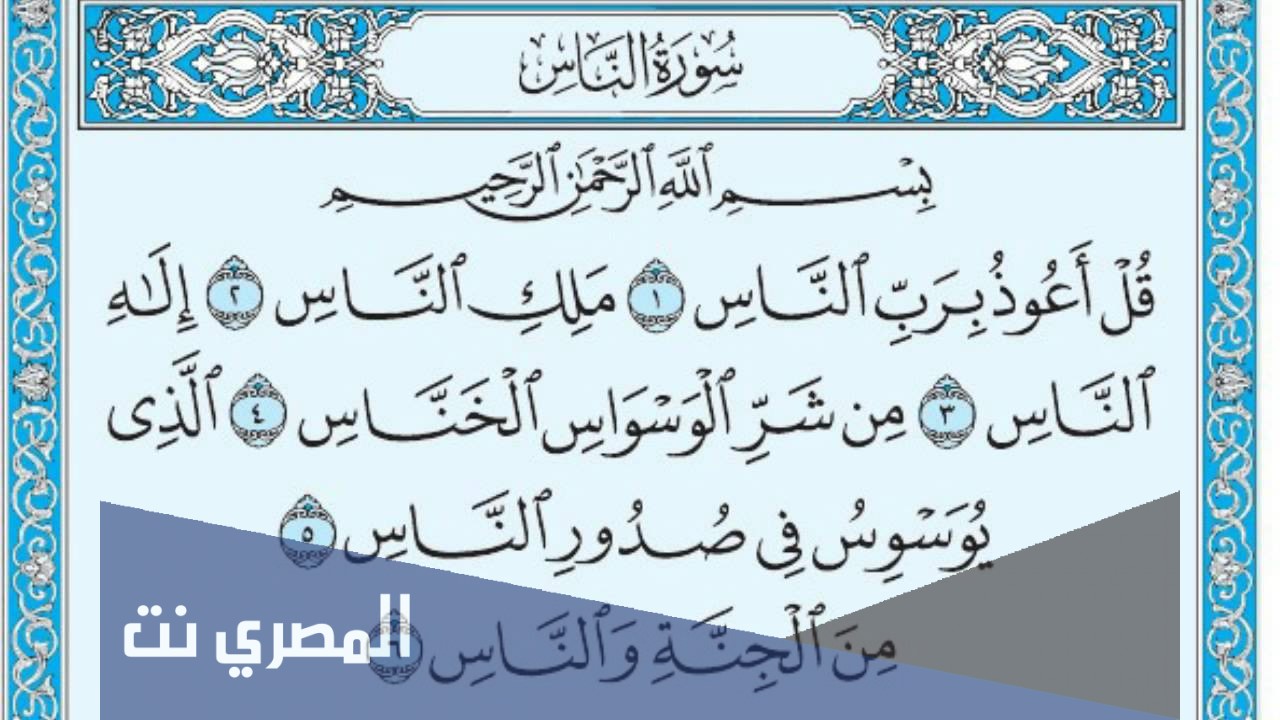 سُورَةُ النَّاسِ
بِسْمِ ٱللَّهِ ٱلرَّحْمَٰنِ ٱلرَّحِيمِ
قُلْ أَعُوذُ بِرَبِّ ٱلنَّاسِ ١ مَلِكِ ٱلنَّاسِ ٢ إِلَٰهِ
ٱلنَّاسِ ٣ مِن شَرِّ ٱلْوَسْوَاسِ ٱلْخَنَّاسِ ٤ ٱلَّذِى
يُوَسْوِسُ فِى صُدُورِ ٱلنَّاسِ ٥
مِنَ ٱلْجِنَّةِ وَٱلنَّاسِ ٦
المصري نت